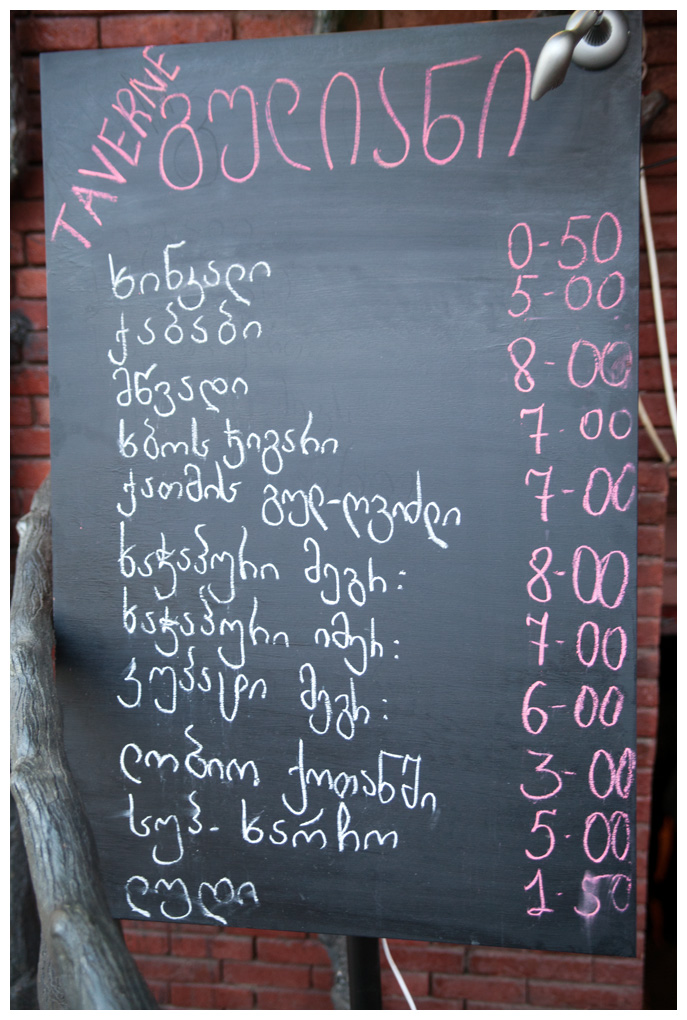 TAVERNE გულიანი
ხინკალი 0-50
ქაბაბი 5-00
მწვადი 8-00
ხბოს ჯიგარი 7-00
ქათმის გულ-ღვიძლი 7-00
ხაჭაპური მეგრ: 8-00
ხაჭაპური იმერ: 7-00
კუპატი მეგრ: 6-00
ლობიო ქოთანში 3-00
სუპ-ხარჩო 5-00
ლუდი 1-50